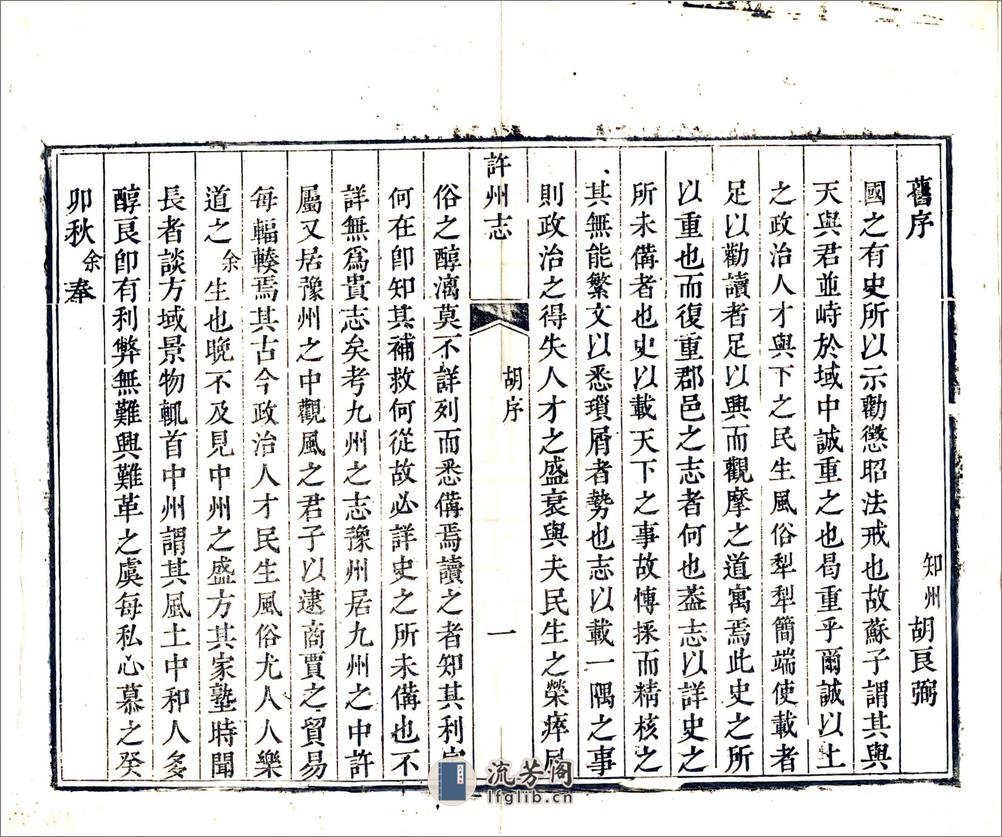 舊序
知州胡良弼
國之有史所以示勸懲昭法戒也故蘇子謂其與
天與君並峙於域中誠重之也曷重乎爾誠以上
之政治人才與下之民生風俗犁犁簡端使載者
足以勸讀者足以興而觀摩之道寓焉此史之所
以重也而復重郡邑之志者何也葢志以詳史之
所未備者也史以載天下之事故愽採而精核之
其無能繁文以悉瑣屑者勢也志以載一隅之事
則政治之得失人才之盛衰與夫民生之榮瘁風
許州志
胡序
一
俗之醇漓莫不詳列而悉備焉讀之者知其利害
何在卽知其補救何從故必詳史之所未備也不
詳無爲貴志矣考九州之志豫州居九州之中許
屬又居豫州之中觀風之君子以逮商賈之貿易
每輻輳焉其古今政治人才民生風俗尤人人樂
道之余生也晚不及見中州之盛方其家塾時聞
長者談方域景物輒首中州謂其風土中和人多
醇良卽有利弊無難興難革之虞每私心慕之癸
卯秋余奉
流芳阁
lfglib.cn